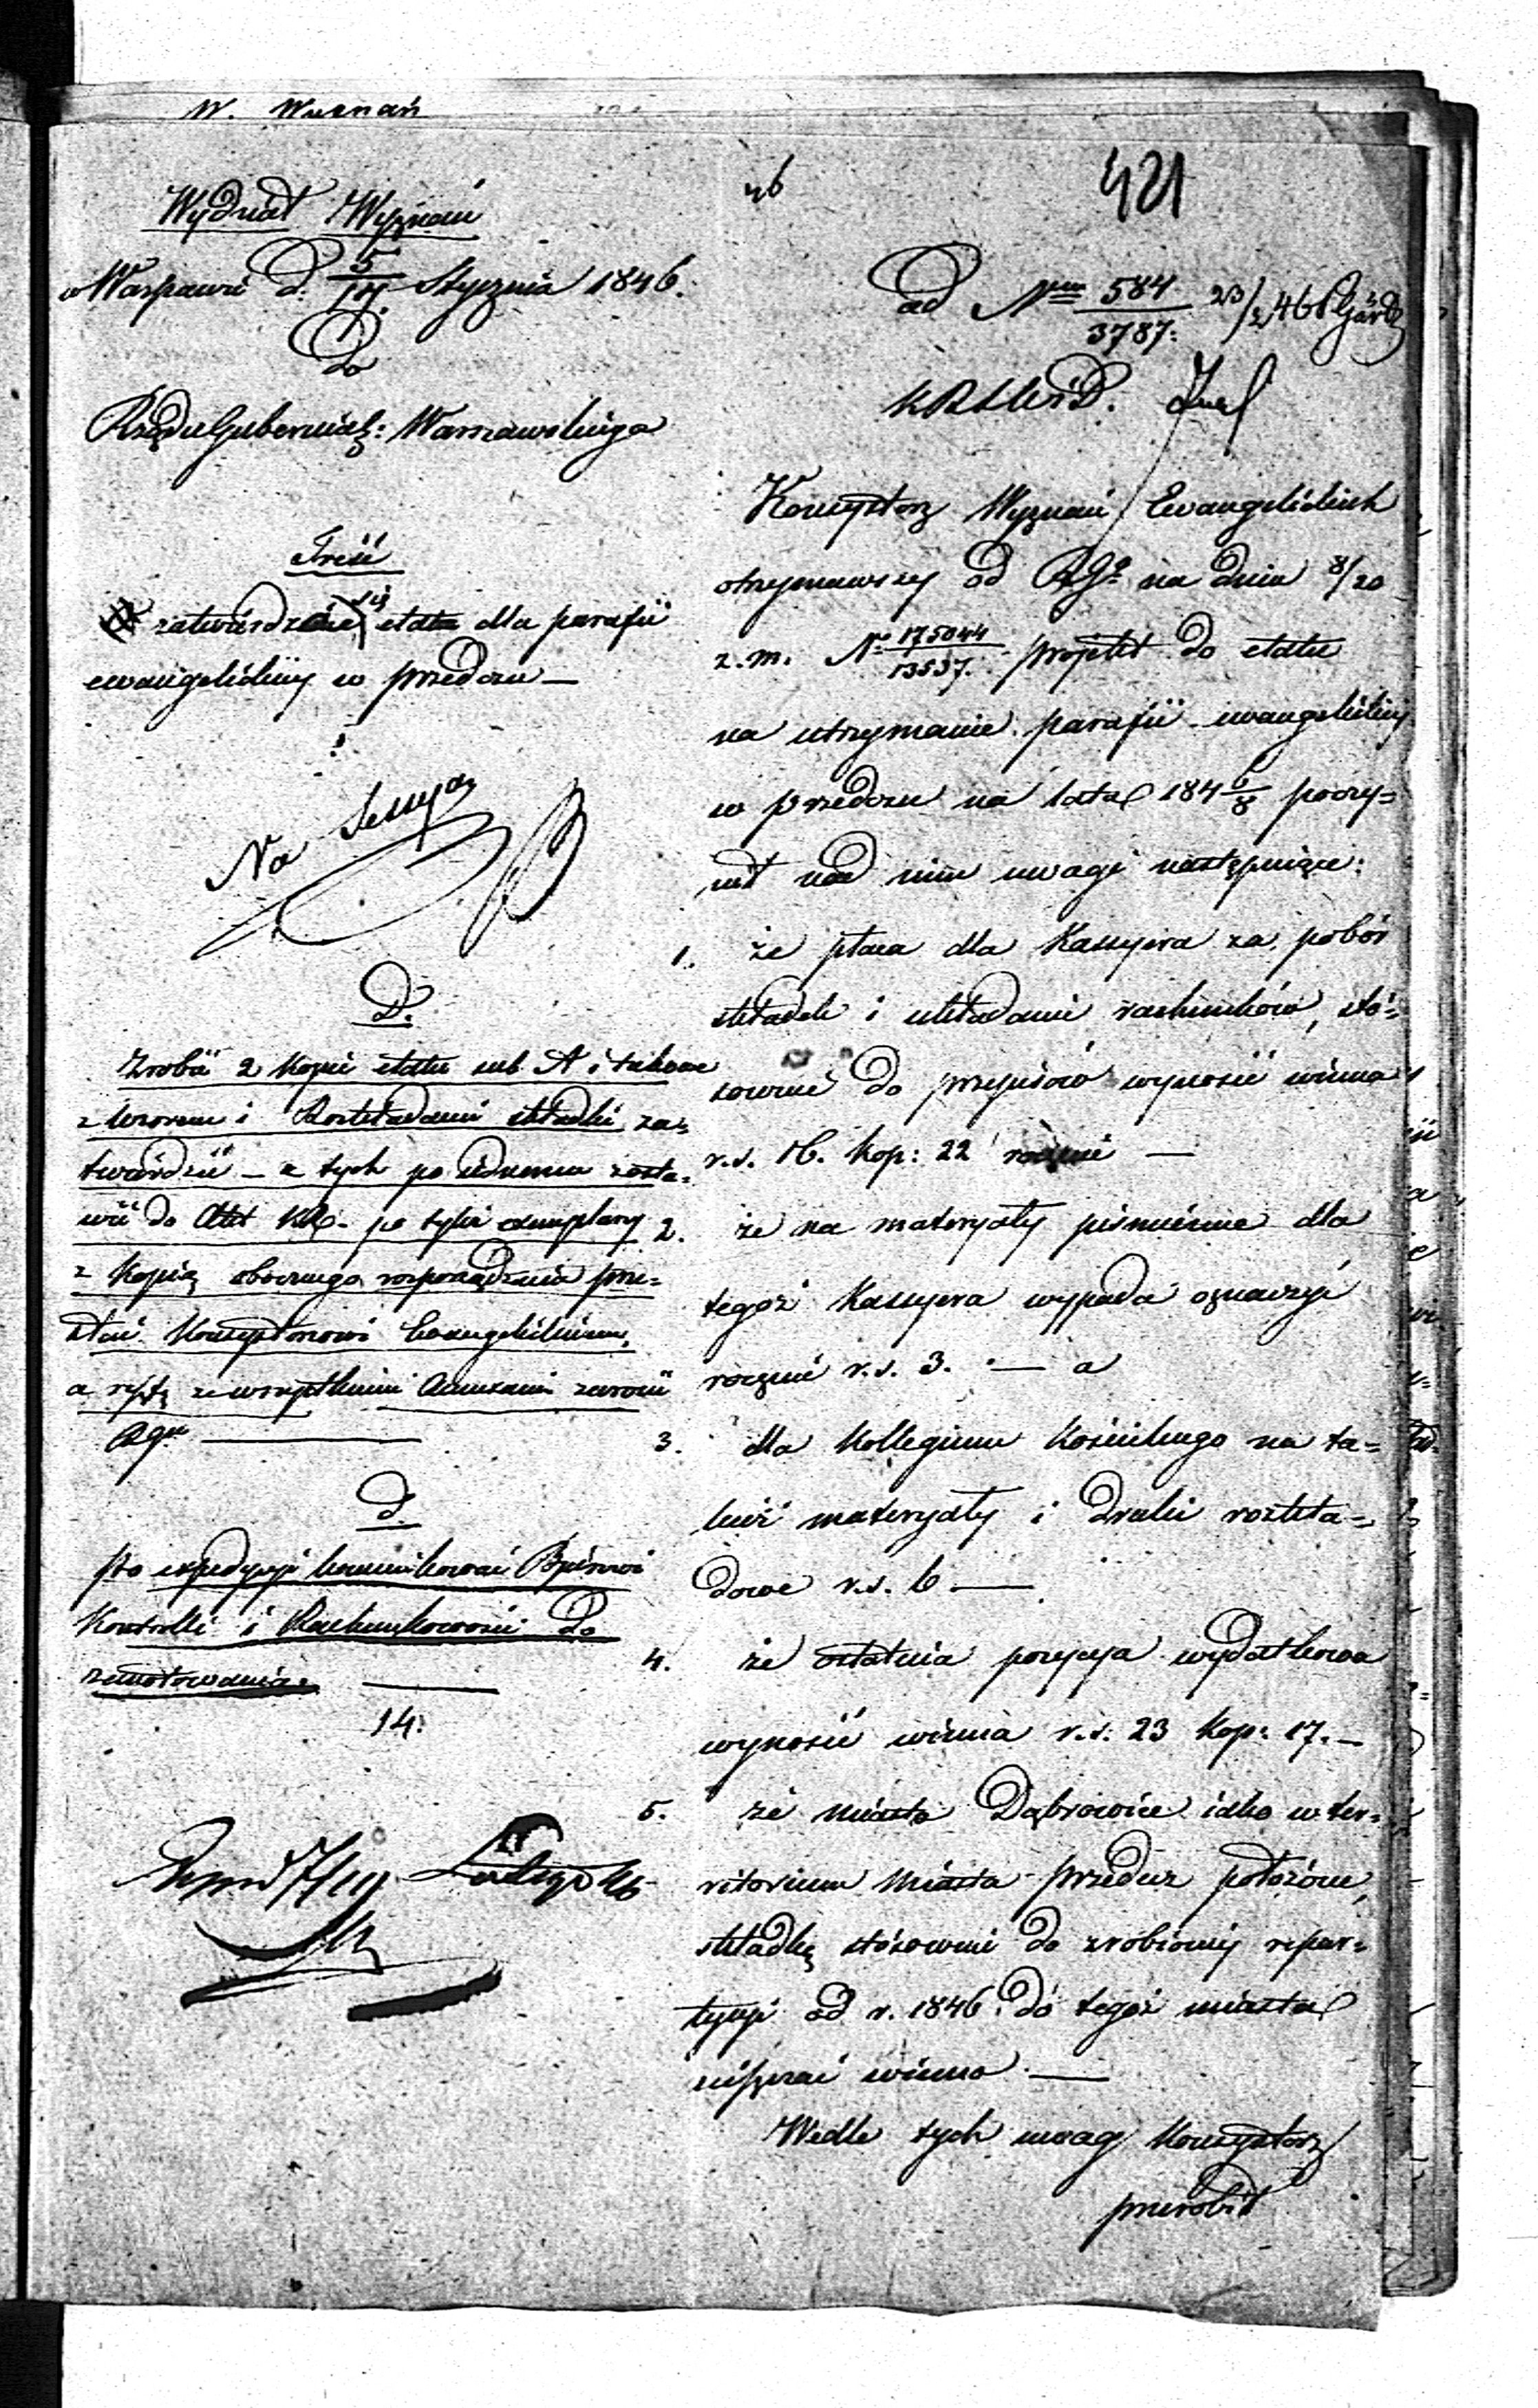 W. Wyznań
46
421
Wydział Wyznań
w Warszawie d. 5/17 Stycznia 1846.
Do
Rządu Gubernial: Warszawskiego
Treść
zatwierdza się etat dla parafii
ewangielickiej w przedczu —
Na Sessyą
D.
Zrobić 2 kopie etatu sub A i takowe
z wzorem i Rozkładami składki za=
twierdzić — z tych po iednemu zosta=
wić do Akt KR. po tyleż exemplarzy
z kopią obocznego rozporządzenia prze=
słać Konsystorzowi Ewangelickiemu,
a resztę ze wszystkiemi Annexami zwrócić
RGu —
D.
Po expedycyi komunikować Biurowi
Kontrolli i Rachunkowości do
zanotowania. —
14.
ad Nrm 584/3787. 23/2 46
KRSWiD.
Konsystorz Wyznań Ewangelickich
otrzymawszy od RGo na dniu 8/20
z. m. No 175044/13537. projekt do etatu
na utrzymanie parafii ewangelickiej
w przedczu na lata 184 6/8 poczy=
nił nad nim uwagi następuiące:
1. że płaca dla Kassyera za pobór
składek i układanie rachunków, stó=
sownie do przepisów wynosić winna
r. s. 16. kop: 22 rocznie —
2. że na materyały piśmienne dla
tegoż Kassyera wypada oznaczyć
rocznie r. s. 3. — a
3. dla Kollegium Kościelnego na ta=
kież materyały i druki rozkła=
dowe r. s. 6 —
4. że ostatnia pozycya wydatkowa
wynosić winna r. s. 23 kop: 17. —
5. że miasto Dąbrowice iako w ter=
ritorium miasta przedcz położone,
składkę stósownie do zrobionej repar=
tycyi od r. 1846. do tegoż miasta
uiszczać winno —
Wedle tych uwag Konsystorz
przerobił